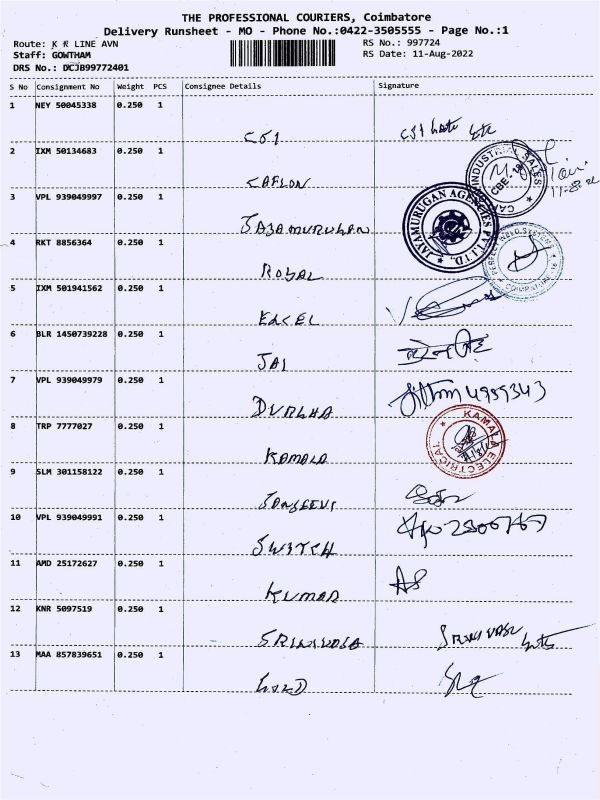 THE PROFESSIONAL COURIERS, Coimbatore
Delivery Runsheet - MO - Phone No.:0422-3505555 - Page No.:1
Route: K R LINE AVN
RS No.: 997724
Staff: GOWTHAM
RS Date: 11-Aug-2022
DRS No.: DCJB99772401
S No Consignment No Weight PCS Consignee Details Signature
1 NEY 50045338 0.250 1
CSI
2 IXM 50134683 0.250 1
CAFLON
INDUSTRIAL SALES
CBE - 18
3 VPL 939049997 0.250 1
JAYAMURUGAN
JAYAMURUGAN AGENCIES PVT.LTD.
4 RKT 8856364 0.250 1
ROYAL
5 IXM 501941562 0.250 1
EXCEL
6 BLR 1450739228 0.250 1
JAI
7 VPL 939049979 0.250 1
DURGHA
8 TRP 7777027 0.250 1
KAMALA
KAMALA ELECTRICAL
9 SLM 301158122 0.250 1
SANJEEVI
10 VPL 939049991 0.250 1
SWITCH
11 AMD 25172627 0.250 1
KUMAR
12 KNR 5097519 0.250 1
SRINIVASA
SRINIVASA
13 MAA 857839651 0.250 1